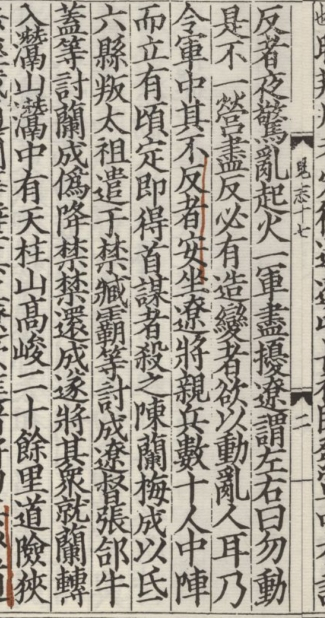 見志十七
二
反者夜驚亂起火一軍盡擾遼謂左右曰勿動
是不一營盡反必有造變者欲以動亂人耳乃
令軍中其不反者安坐遼將親兵數十人中陣
而立有頃定即得首謀者殺之陳蘭梅成以氏
六縣叛太祖遣于禁臧霸等討成遼督張郃牛
蓋等討蘭成僞降禁禁還成遂將其衆就蘭轉
入灊山灊中有天柱山高峻二十餘里道險狹